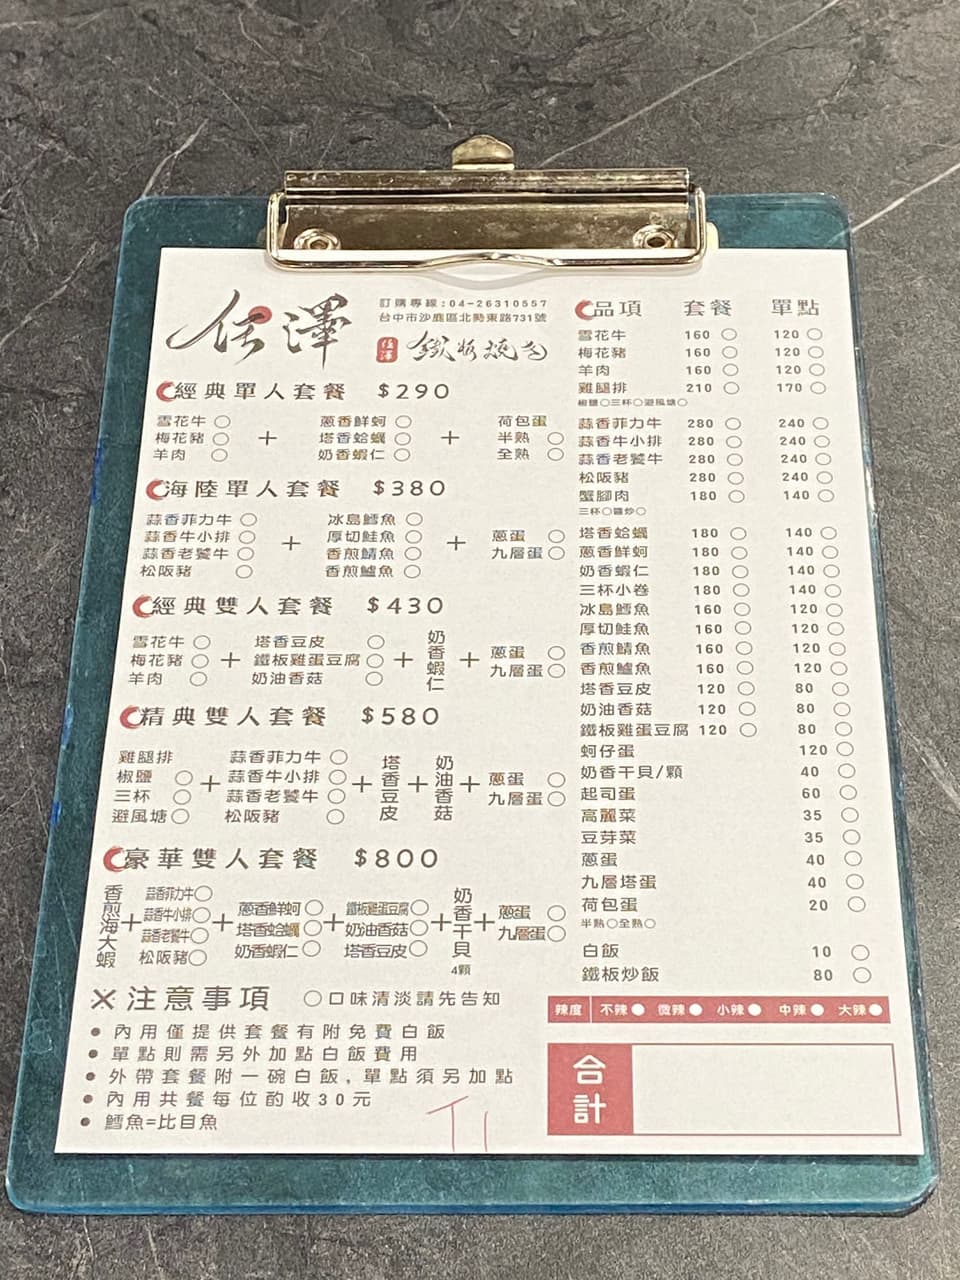 佐澤
訂購專線:04-26310557
台中市沙鹿區北勢東路731號
佐澤 鐵板燒
經典單人套餐 $290
雪花牛○ 蔥香鮮蚵○ 荷包蛋
梅花豬○ + 塔香蛤蠣○ + 半熟○
羊肉○ 奶香蝦仁○ 全熟○
海陸單人套餐 $380
蒜香菲力牛○ 冰島鱈魚○
蒜香牛小排○ + 厚切鮭魚○ + 蔥蛋○
蒜香老饕牛○ 香煎鯖魚○ 九層蛋○
松阪豬○ 香煎鱸魚○
經典雙人套餐 $430
雪花牛○ 塔香豆皮○ 奶香蝦仁 蔥蛋○
梅花豬○ + 鐵板雞蛋豆腐○ + + 九層蛋○
羊肉○ 奶油香菇○
精典雙人套餐 $580
雞腿排 蒜香菲力牛○ 塔香豆皮 奶油香菇
椒鹽○ + 蒜香牛小排○ + + + 蔥蛋○
三杯○ 蒜香老饕牛○ 九層蛋○
避風塘○ 松阪豬○
豪華雙人套餐 $800
香煎海大蝦 蒜香菲力牛○ 奶香干貝
+ 蒜香牛小排○ + 蔥香鮮蚵○ + 鐵板雞蛋豆腐○ + + 蔥蛋○
蒜香老饕牛○ 塔香蛤蠣○ 奶油香菇○ 九層蛋○
松阪豬○ 奶香蝦仁○ 塔香豆皮○ 4顆
※注意事項 ○口味清淡請先告知
• 內用僅提供套餐有附免費白飯
• 單點則需另外加點白飯費用
• 外帶套餐附一碗白飯,單點須另加點
• 內用共餐每位酌收30元
• 鱈魚=比目魚
品項 套餐 單點
雪花牛 160○ 120○
梅花豬 160○ 120○
羊肉 160○ 120○
雞腿排 210○ 170○
椒鹽○三杯○避風塘○
蒜香菲力牛 280○ 240○
蒜香牛小排 280○ 240○
蒜香老饕牛 280○ 240○
松阪豬 280○ 240○
蟹腳肉 180○ 140○
三杯○鹽炒○
塔香蛤蠣 180○ 140○
蔥香鮮蚵 180○ 140○
奶香蝦仁 180○ 140○
三杯小卷 180○ 140○
冰島鱈魚 160○ 120○
厚切鮭魚 160○ 120○
香煎鯖魚 160○ 120○
香煎鱸魚 160○ 120○
塔香豆皮 120○ 80○
奶油香菇 120○ 80○
鐵板雞蛋豆腐 120○ 80○
蚵仔蛋 120○
奶香干貝/顆 40○
起司蛋 60○
高麗菜 35○
豆芽菜 35○
蔥蛋 40○
九層塔蛋 40○
荷包蛋 20○
半熟○全熟○
白飯 10○
鐵板炒飯 80○
辣度 不辣 微辣 小辣 中辣 大辣
合計